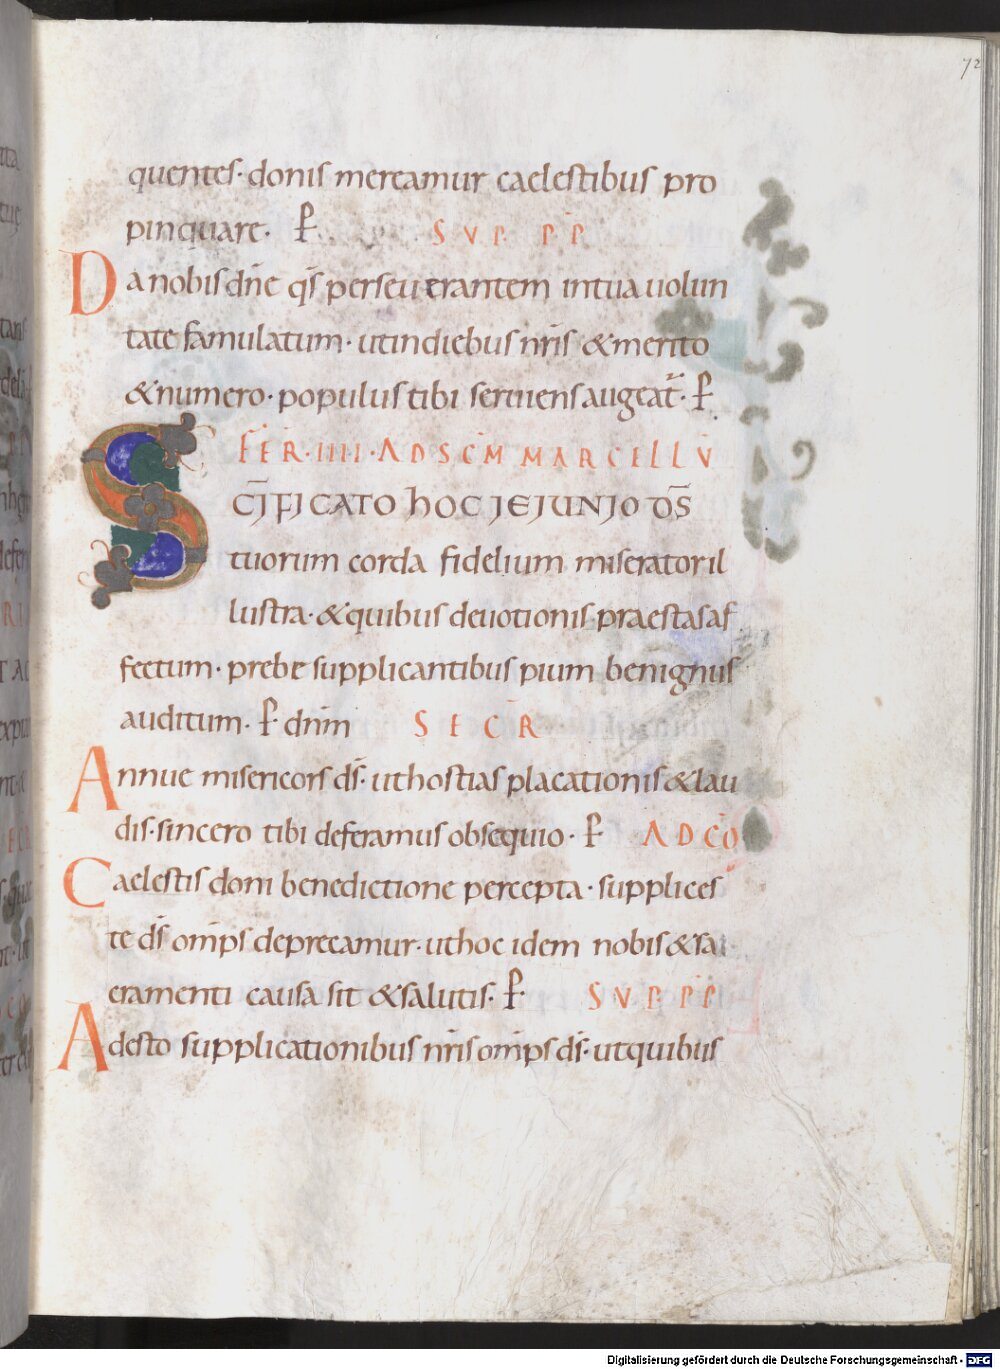 72
quentes· donis mereamur caelestibus pro
pinquare· P̶ SVP PP
Da nobis dn̄e qs̄ perseuerantem in tua uolun
tate famulatum· ut in diebus nr̄is & merito
& numero· populus tibi seruiens augeat̄· P̶
FER· IIII· AD SCM MARCELLV̄
SCĪFICATO hOC IEIUNIO DS̄
tuorum corda fidelium miserator il
lustra· & quibus deuotionis praestas af
fectum· prebe supplicantibus pium benignus
auditum· P̶ dnm̄ SECR
Annue misericors ds̄· ut hostias placationis & lau
dis· sincero tibi deferamus obsequio· P̶ AD CŌ
Caelestis doni benedictione percepta· supplices
te ds̄ omp̄s deprecamur· ut hoc idem nobis & sa
cramenti causa sit & salutis· P̶ SVP PP
Adesto supplicationibus nr̄is omp̄s ds̄· ut quibus
Digitalisierung gefördert durch die Deutsche Forschungsgemeinschaft - DFG